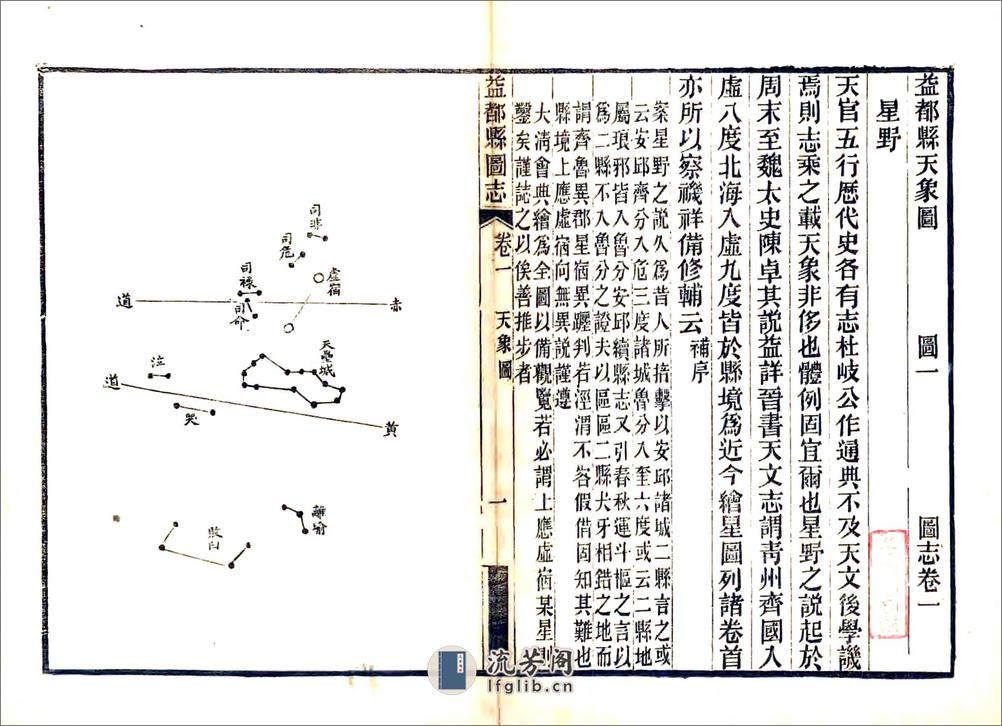 益都縣天象圖 圖一 圖志卷一
星野
天官五行歷代史各有志杜岐公作通典不及天文後學譏
焉則志乘之載天象非侈也體例固宜爾也星野之說起於
周末至魏太史陳卓其說益詳晉書天文志謂青州齊國入
虛八度北海入虛九度皆於縣境爲近今繪星圖列諸卷首
亦所以察禨祥備修輔云補序
案星野之說久爲昔人所掊擊以安邱諸城二縣言之或
云安邱齊分入危三度諸城魯分入奎六度或云二縣
屬琅邪皆入魯分安邱續縣志又引春秋運斗樞之言以
爲二縣不入魯分之證夫以區區二縣犬牙相錯之地而
謂齊魯異郡星野異躔判若涇渭不容假借固知其難也
縣境上應虛宿向無異說謹遵
大清會典繪爲全圖以備觀覽若必謂上應虛宿某星則
鑿矣謹誌之以俟善推步者
益都縣圖志 卷一 天象圖 一
司非
司危
虛宿
司祿
司命
赤
道
天壘城
泣
道
哭
黃
離瑜
敗臼
流芳阁
lfglib.cn